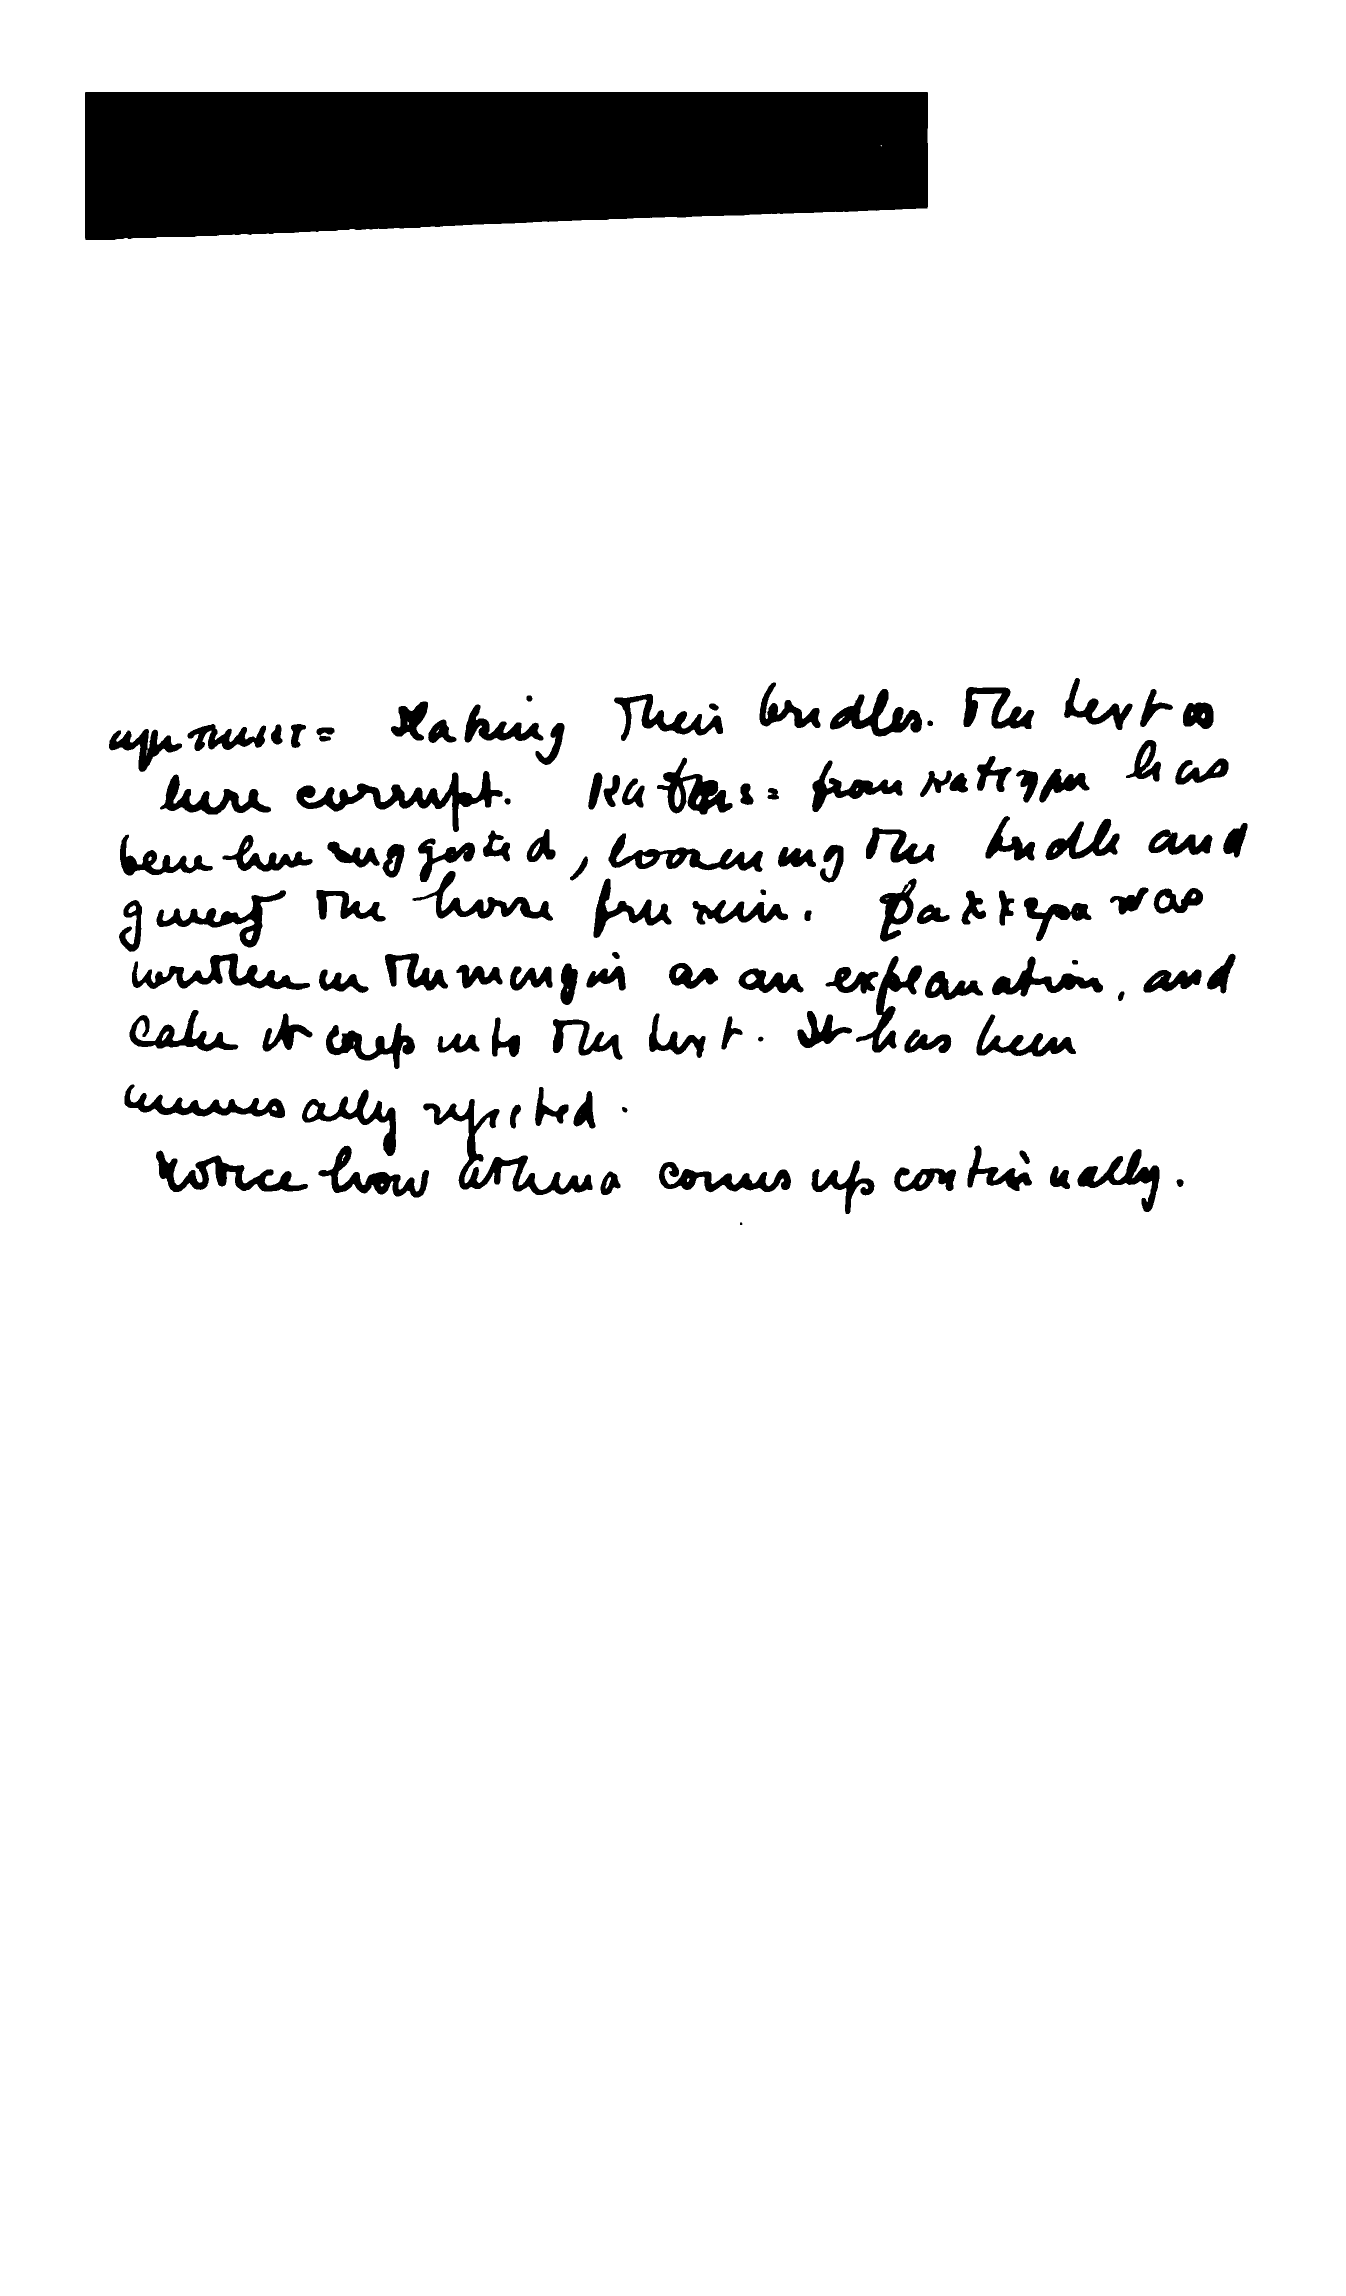 = slaking their bridles. The text is
here corrupt. = from has
been here suggested, loosening the bridle and
giving the horse free rein. was
written in the margin as an explanation, and
later it crept into the text. It has been
universally rejected.
Notice how Athena comes up continually.